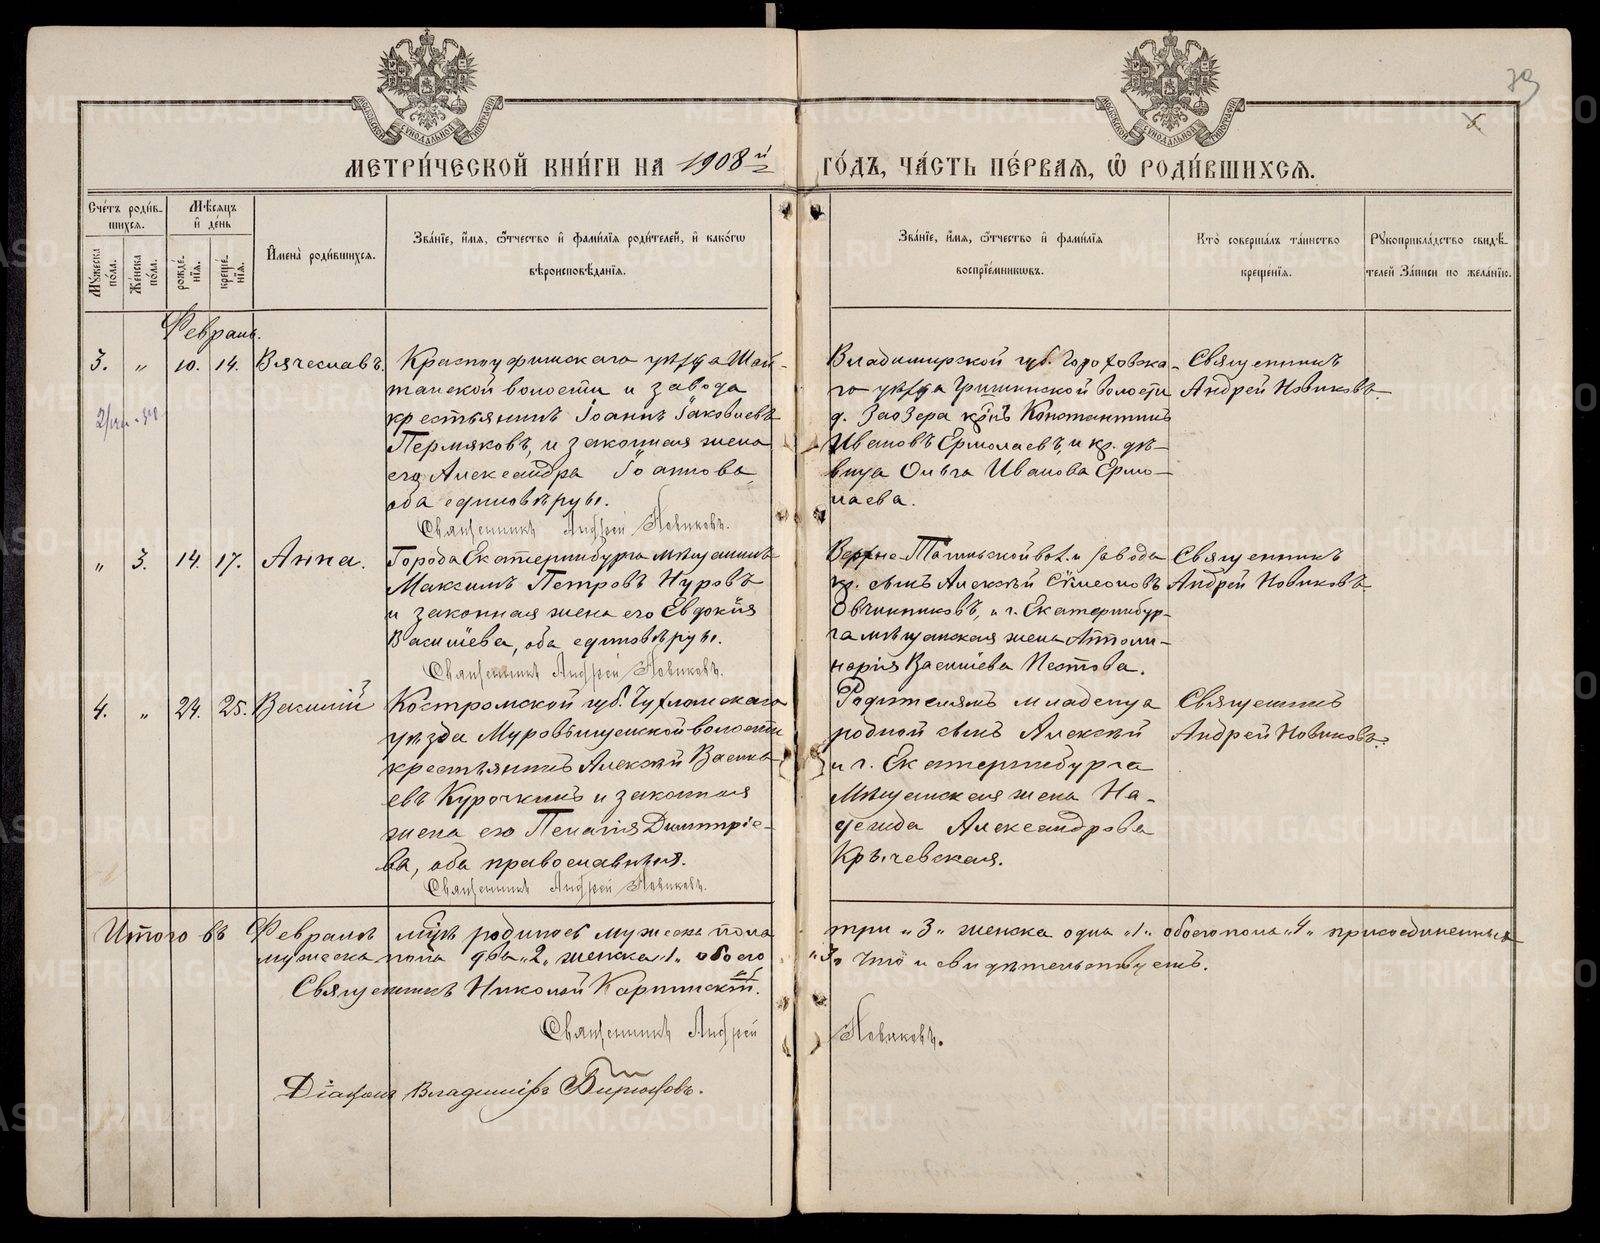 МЕТРИ́ЧЕСКОЙ КНИ́ГИ НА 1908й
ГО́ДЪ, ЧА́СТЬ ПЕ́РВАЯ, Ѡ҆ РОДИ́ВШИХСЯ.
Сче́тъ роди́в-
шихся.
Мѣ́сяцъ
и҆ де́нь
Мꙋ́жеска по́ла.
Же́нска по́ла.
рожде́-
нїя.
креще́-
нїя.
И҆мена̀ роди́вшихся.
Зва́нїе, и҆́мя, ѻ҆́тчество и҆ фами́лїя роди́телей, и҆ како́гѡ
вѣроисповѣ́данїя.
Зва́нїе, и҆́мя, ѻ҆́тчество и҆ фами́лїя
воспрїе́мникѡвъ.
Кто̀ соверша́лъ та́инство
креще́нїя.
Рꙋкоприкла́дство свидѣ́-
телей за́писи по жела́нїю.
Февраль.
3. „ 10. 14. Вячеславъ.
Красноуфимскаго уѣзда Шай-
танской волости и завода
крестьянинъ Іоаннъ Іаковлевъ
Пермяковъ, и законная жена
его Александра Іоаннова,
оба единовѣрцы.
Священникъ Андрей Новиковъ.
Владимирской губ. Гороховска-
го уѣзда Гришинской волости
д. Заозера крнъ Константинъ
Ивановъ Ермолаевъ, и кр. дѣ-
вица Ольга Иванова Ермо-
лаева.
Священникъ
Андрей Новиковъ.
„ 3. 14. 17. Анна.
Города Екатеринбурга мѣщанинъ
Максимъ Петровъ Нуровъ
и законная жена его Евдокія
Васильева, оба единовѣрцы.
Священникъ Андрей Новиковъ.
Верхне-Тагильской вол. и завода
кр. сынъ Алексѣй Сѵмеоновъ
Овчинниковъ, и г. Екатеринбур-
га мѣщанская жена Аполли-
нарія Васильева Пестова.
Священникъ
Андрей Новиковъ.
4. „ 24. 25. Василій
Костромской губ. Чухломскаго
уѣзда Муровьищенской волости
крестьянинъ Алексѣй Василь-
евъ Курочкинъ и законная
жена его Пелагія Димитріе-
ва, оба православныя.
Священникъ Андрей Новиковъ.
Родителямъ младенца
родной сынъ Алексѣй
и г. Екатеринбурга
мѣщанская жена На-
дежда Александрова
Крычевская.
Священникъ
Андрей Новиковъ.
Итого въ Февралѣ мцѣ родилось мужеска пола
три „3„ женска одна „1„ обоего пола „4„ присоединенныхъ
мужеска пола два „2„ женска „1„ обоего
„3„ Что и свидѣтельствуемъ.
Священникъ Николай Карпинскій.
Священникъ Андрей
Новиковъ.
Діаконъ Владиміръ Бирюковъ.
METRIKI.GASO-URAL.RU